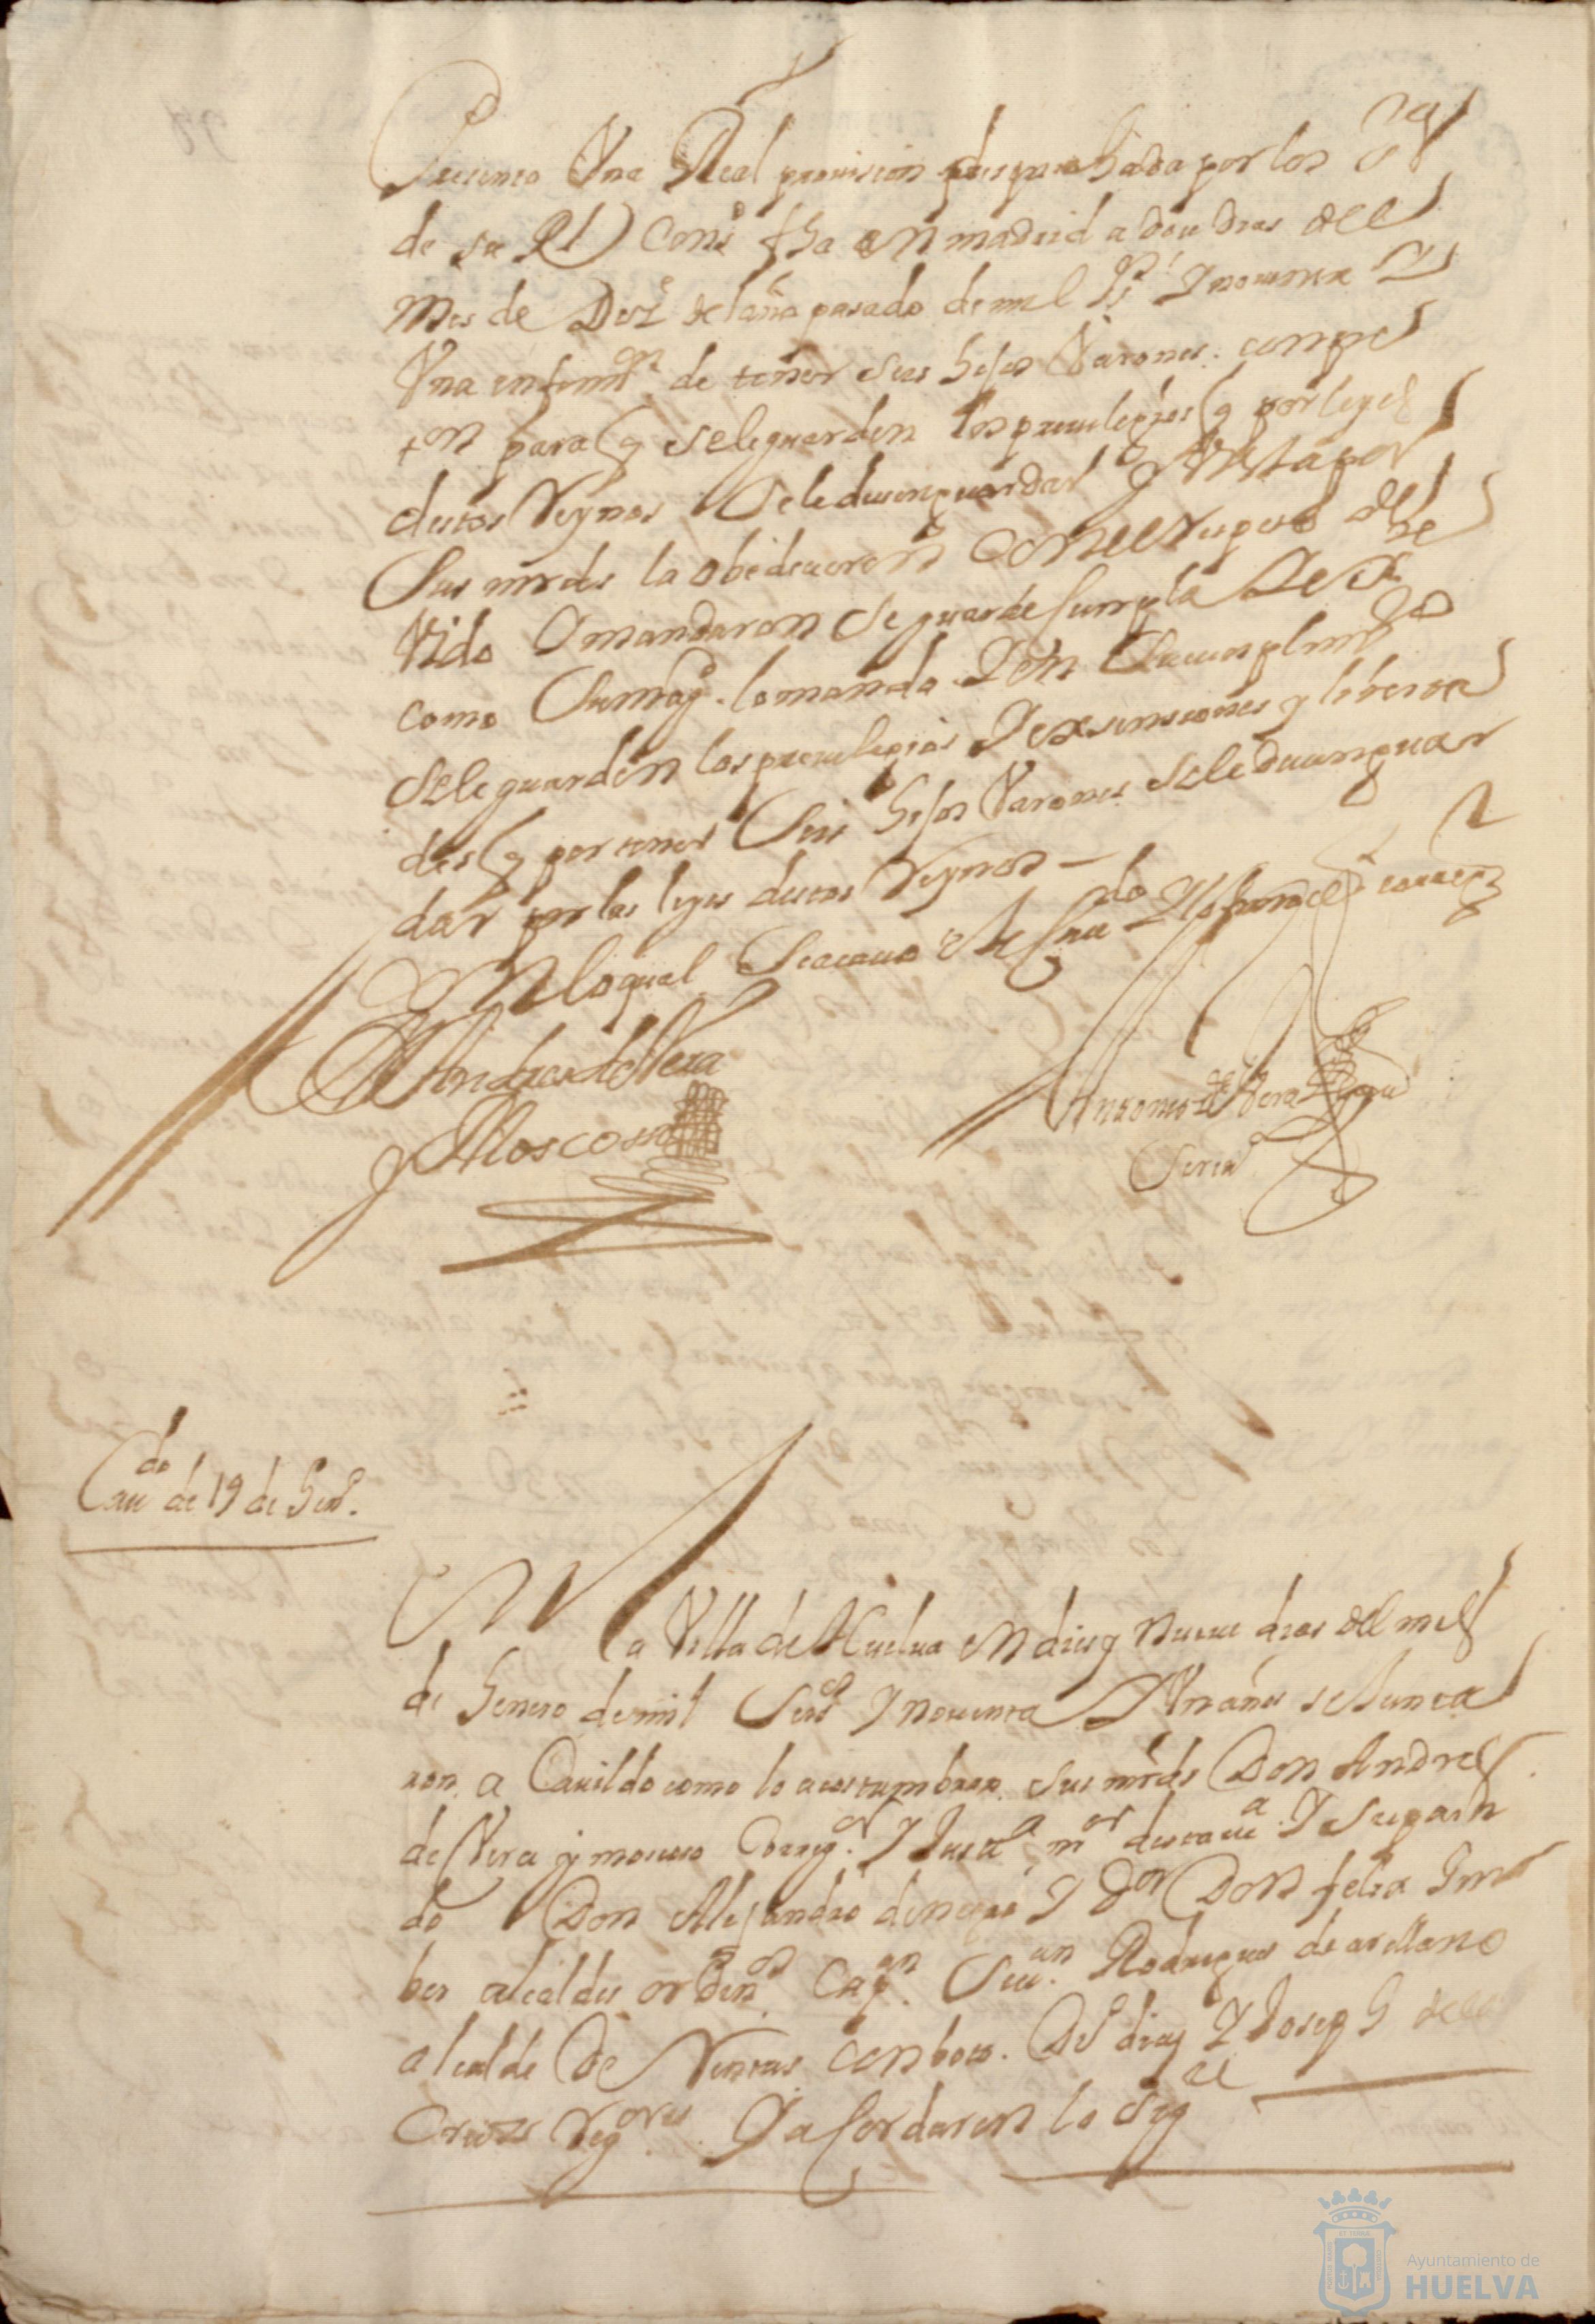 Presento Una Real prouision despachada por los SS
de su Rl Consº fha en madrid a doze dias del
Mes de Dizº del año pasado de mil Ssº Y nouenta Y
Una informon de tener seis hijos Varones. conpe
ton para q se le guarden los preuilegios q por leyes
destos Reynos se le deuen guardar y Vista por
Sus mrdes la obedecieron con el respecto deui
do Y mandaron se guarde Cumpla
como Su magd. lo manda Y en Su cumplimto
se le guarden los preuilegios Y exsenciones y liberta
des q por tener Seis hijos Varones se le deuen guar
dar por las leyes destos Reynos —
En lo qual Se acauo este Caudo Y lo firmo el sr corregor
Don Andres de Vera
y Moscosso
Antonio de Vera
Caudo de 19 de Henº.
En la Villa de Huelua en dies y nueue dias del mes
de Henero de mil Seisos Y nouenta Y Un años se Junta
ron a Cauildo como lo acostumbran sus mrdes Don Andres
de Vera y moscoso Corregor. Y Justa mor desta va Y su parti
do Don Alejandro de negro Y Dor Don felix
ber alcaldes ordenos Capn. Seuan. Rodrigues de arellano
alcalde De Rentas con boto. Dº dias Y Joseph de la
Cruz Regores. Y aCordaron lo sigte
Ayuntamiento de
HUELVA